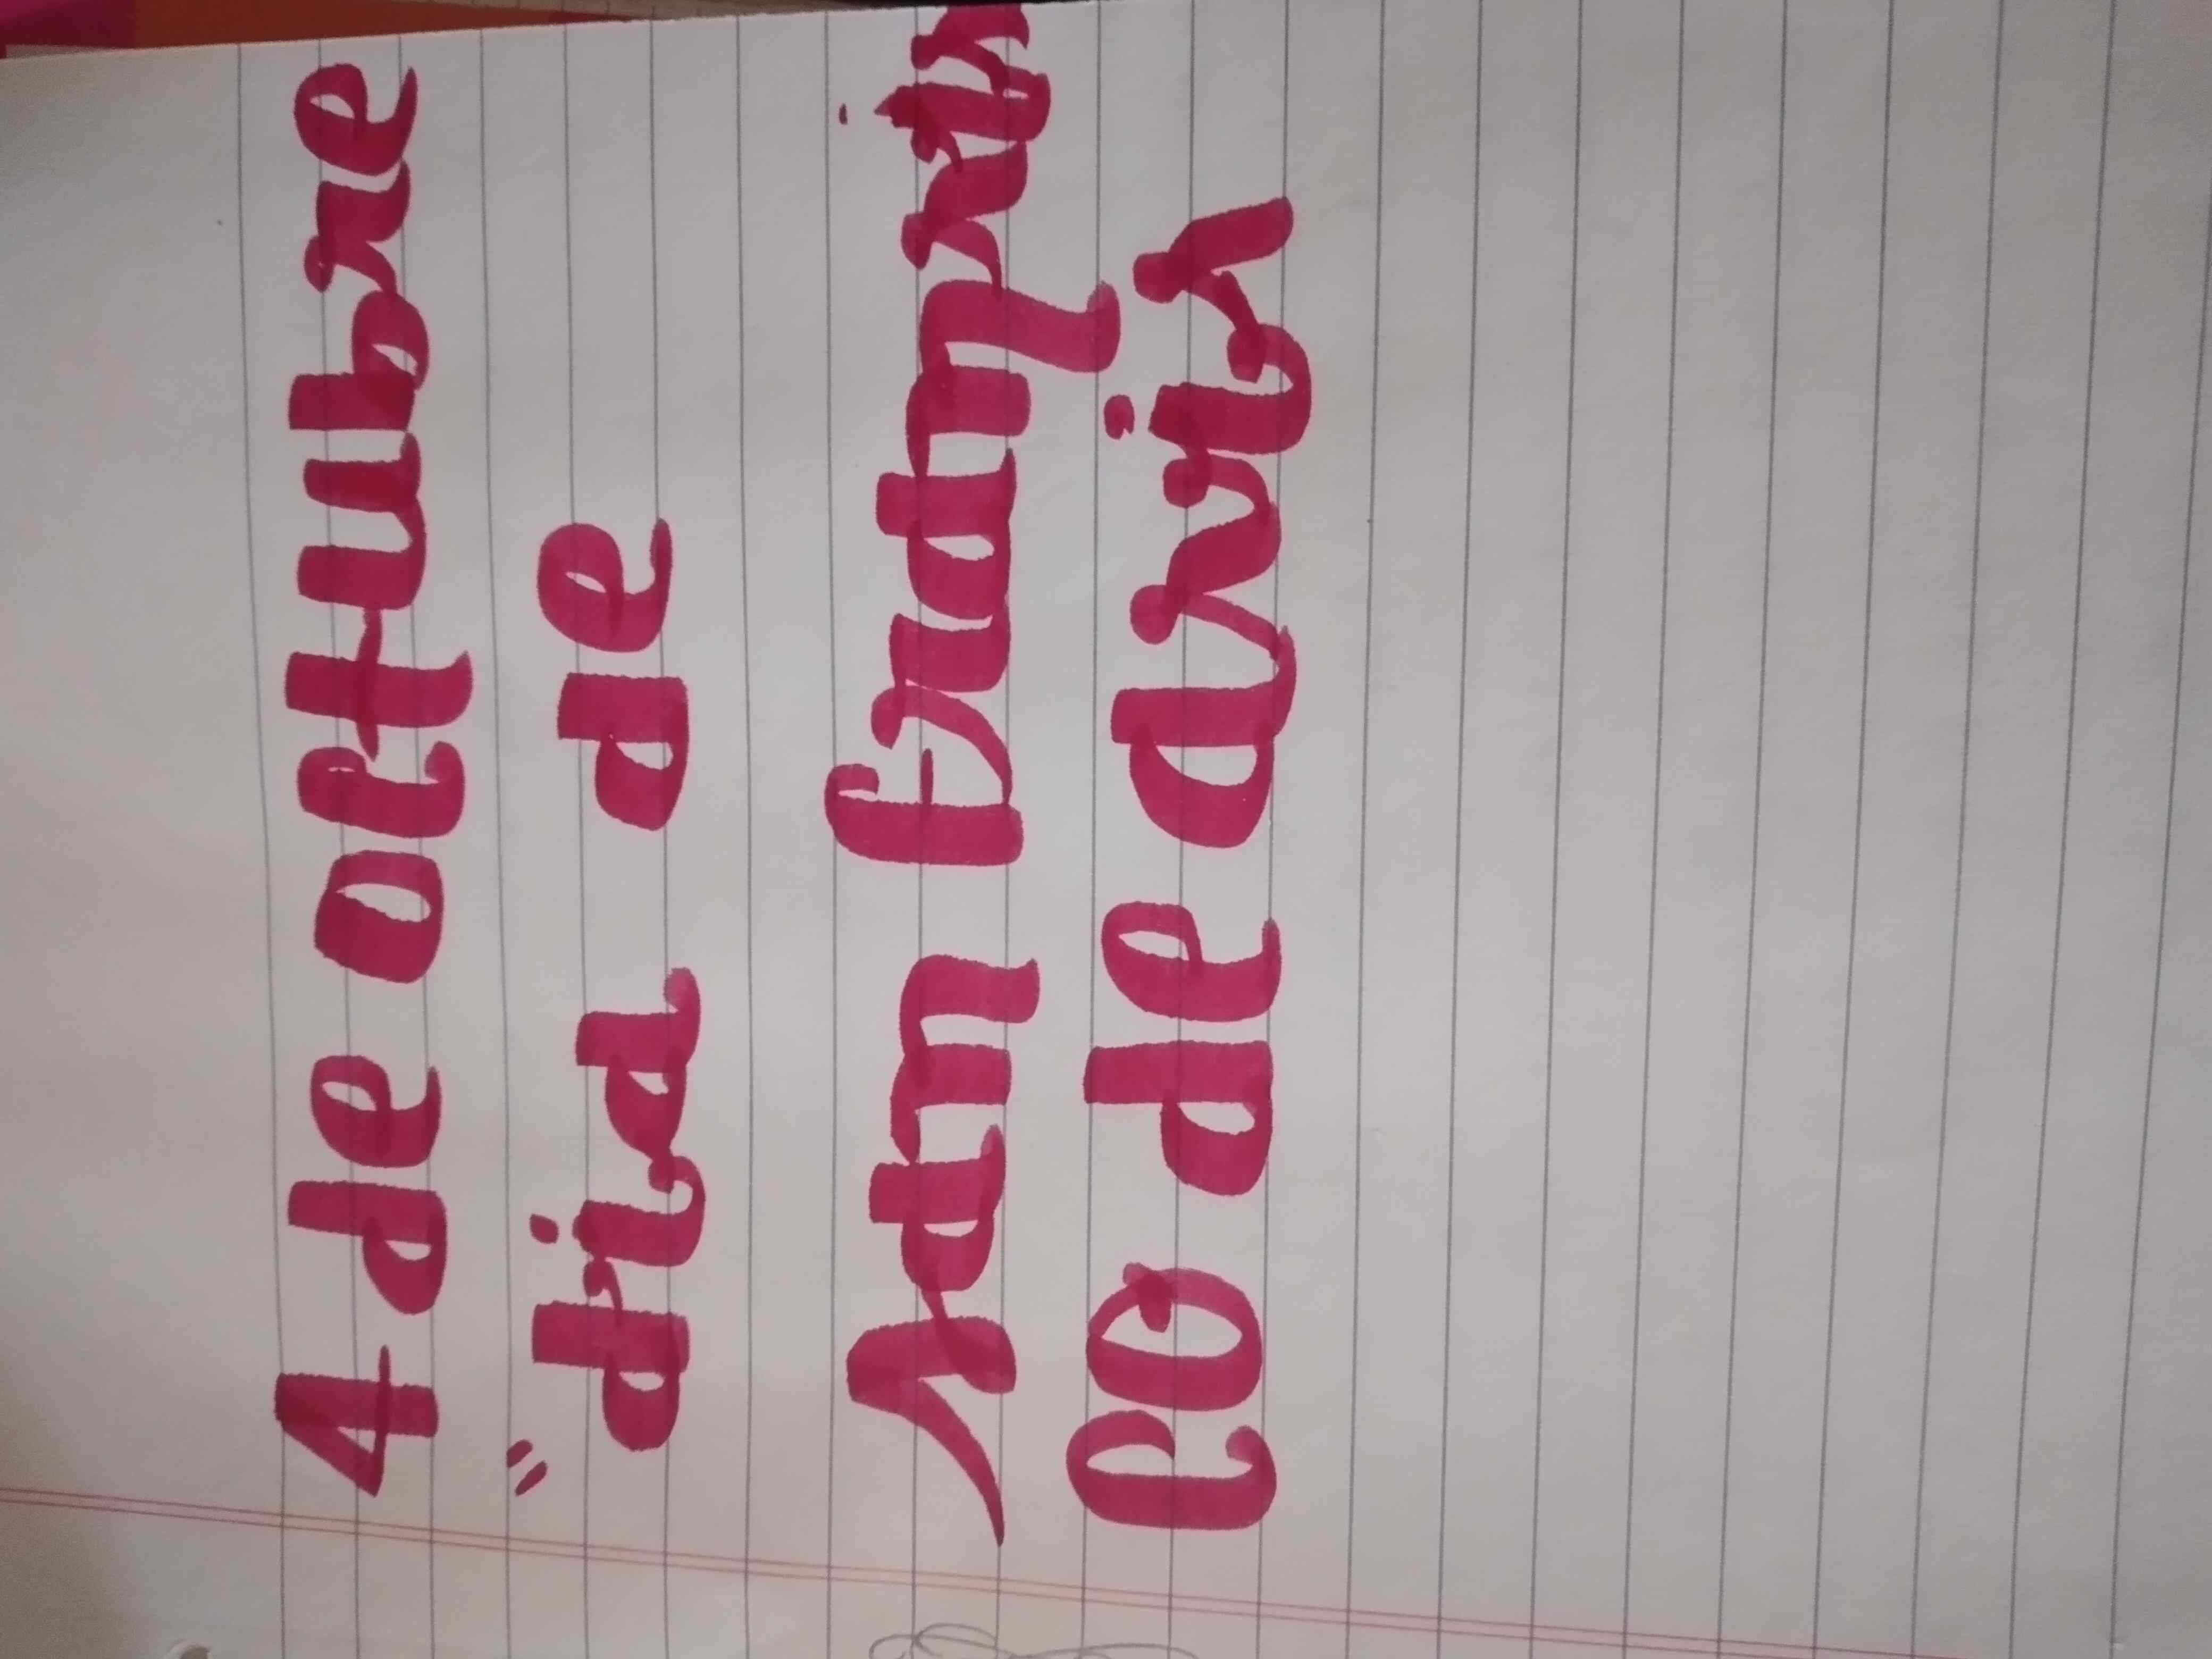 4 de octubre
" dia de
san francis
co de asis